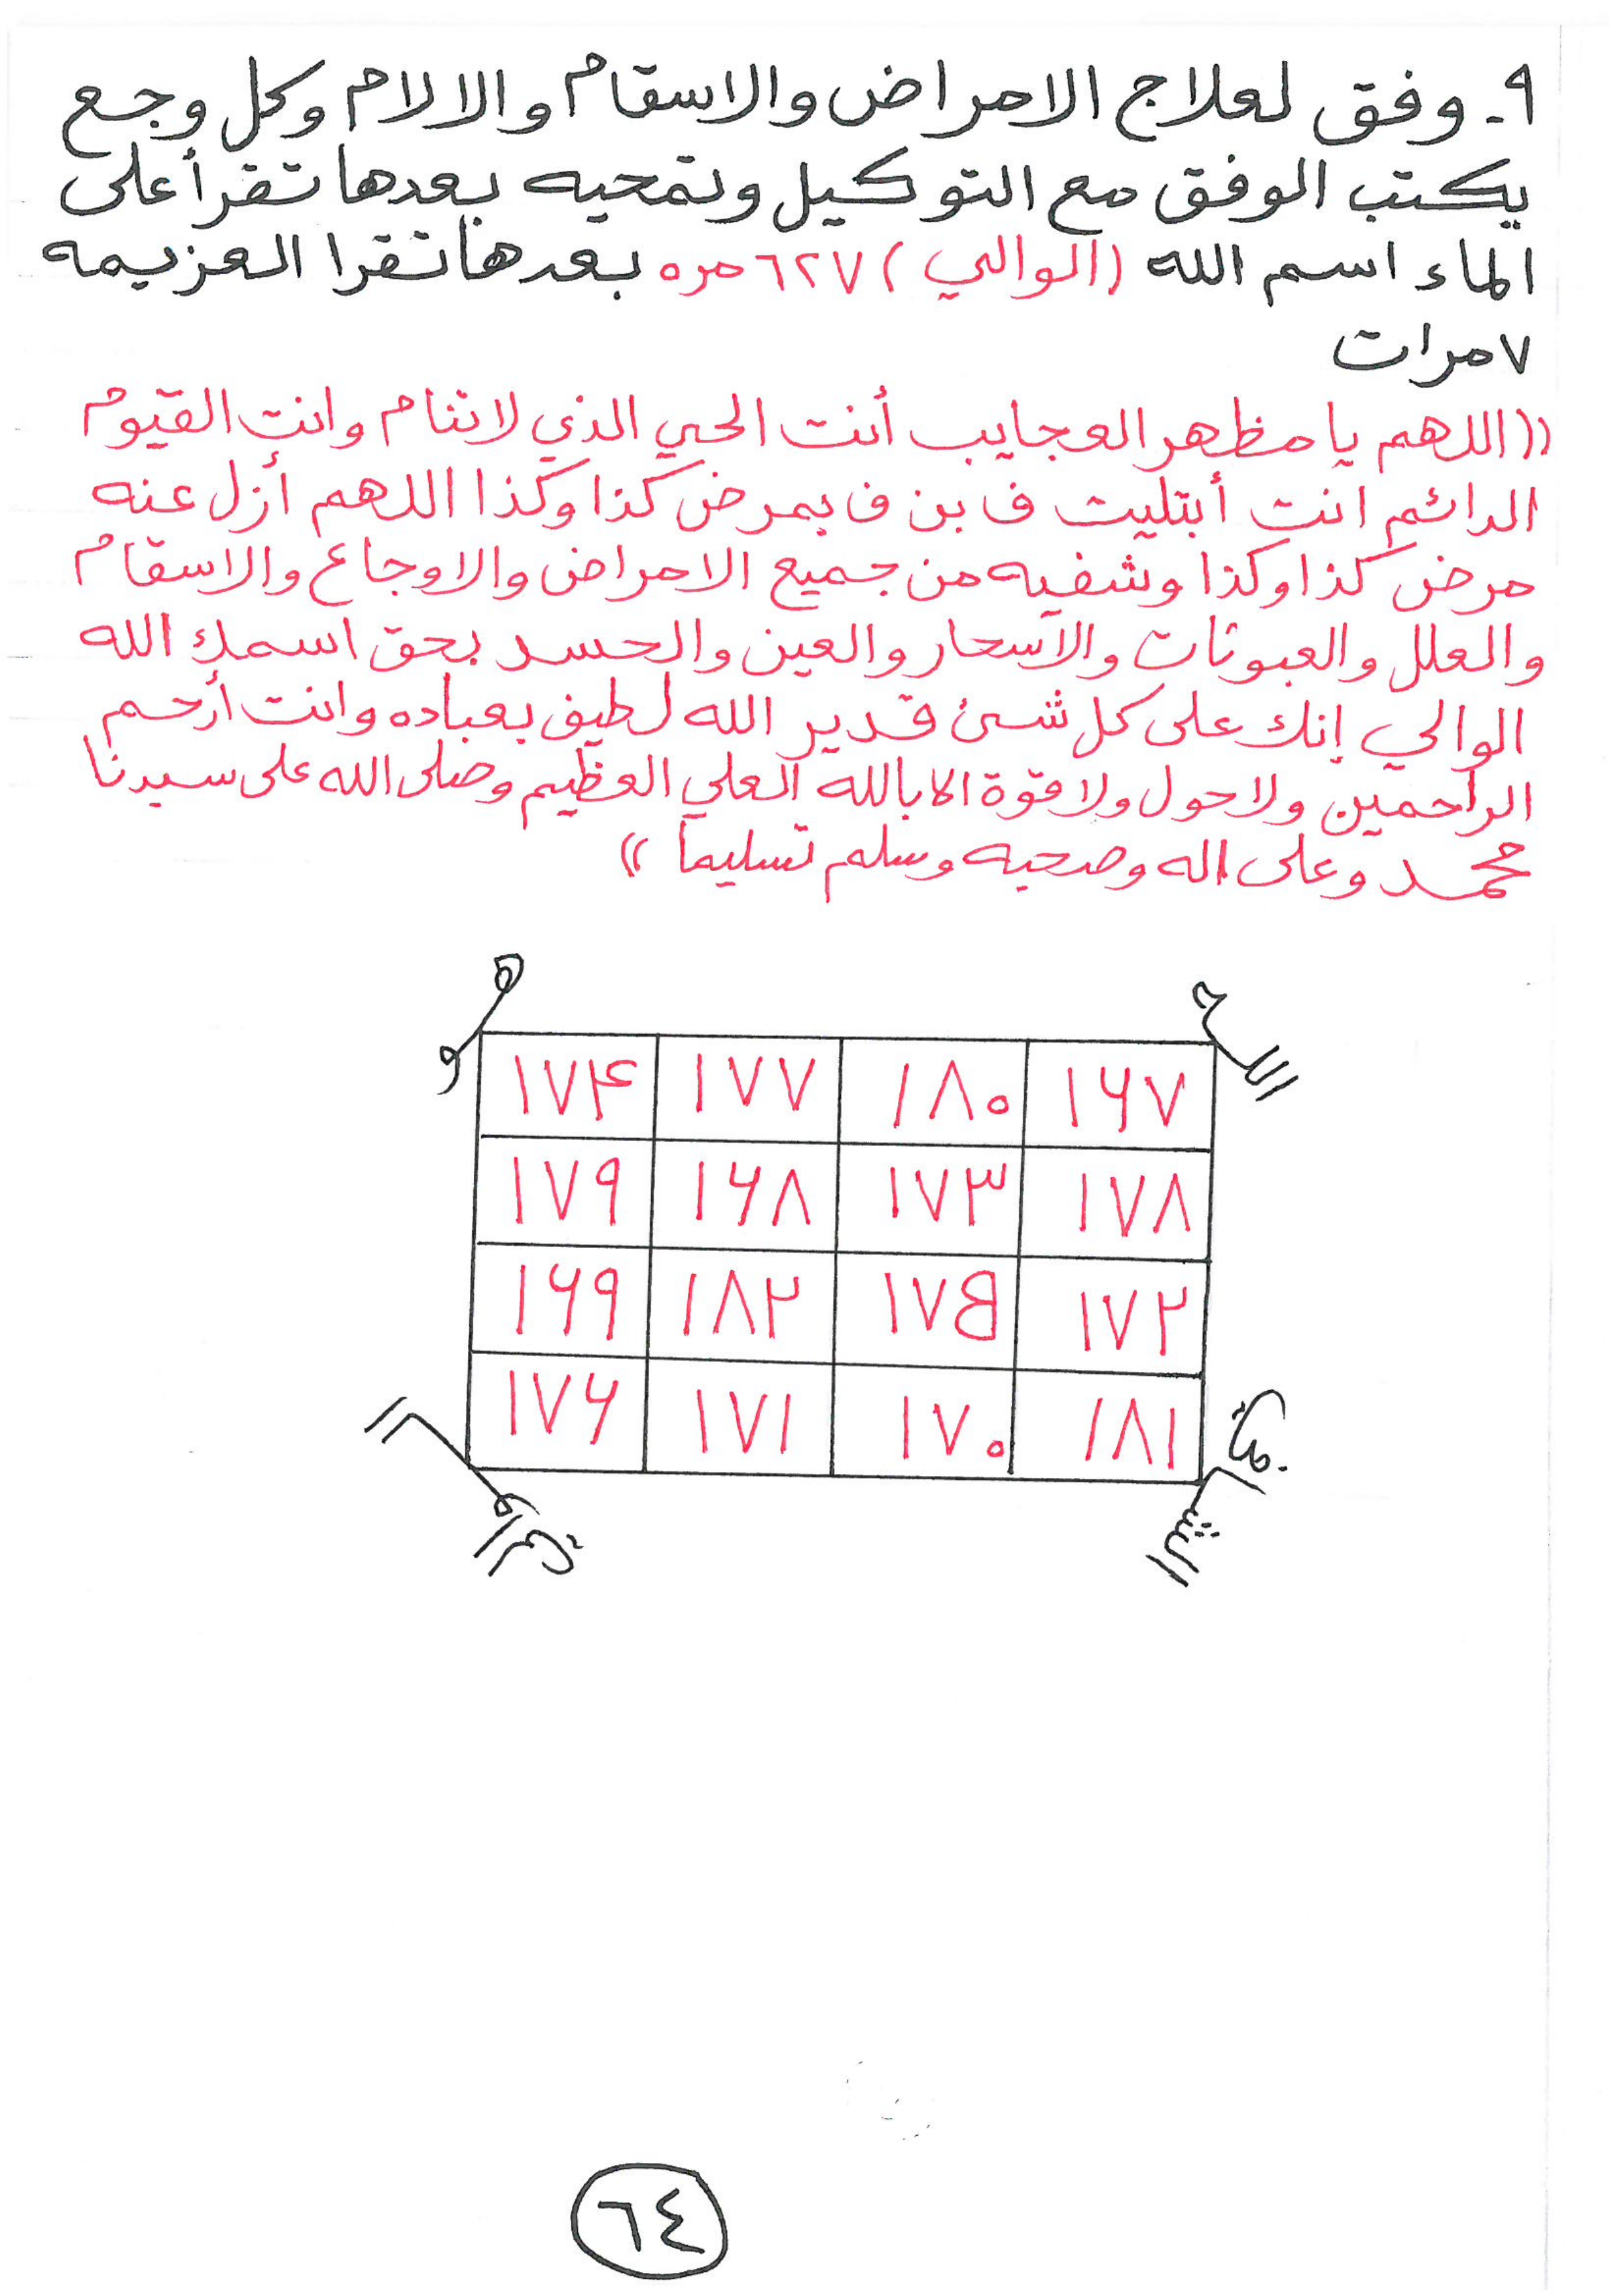 ٩ـ وفق لعلاج الامراض والاسقام والالام وكل وجع
يكتب الوفق مع التوكيل وتمحيه بعدها تقرأ على
الماء اسم الله (الوالي) ٦٢٧ مره بعدها تقرا العزيمه
٧ مرات
((اللهم يا مظهر العجايب أنت الحي الذي لا تنام وانت القيوم
الدائم انت أبتليت ف بن ف بمرض كذا وكذا اللهم أزل عنه
مرض كذا وكذا وشفيه من جميع الامراض والاوجاع والاسقام
والعلل والعبوثات والآسحار والعين والحسد بحق اسمك الله
الوالي إنك على كل شئ قدير الله لطيف بعباده وانت أرحم
الراحمين ولا حول ولا قوة الا بالله العلي العظيم وصلى الله على سيدنا
محمد وعلى اله وصحبه وسلم تسليما))
١٦٧ ١٨٠ ١٧٧ ١٧۴
١٧٨ ١٧٣ ١٦٨ ١٧٩
١٧٢ ١٧٥ ١٨٢ ١٦٩
١٨١ ١٧٠ ١٧١ ١٧٦
٦٤